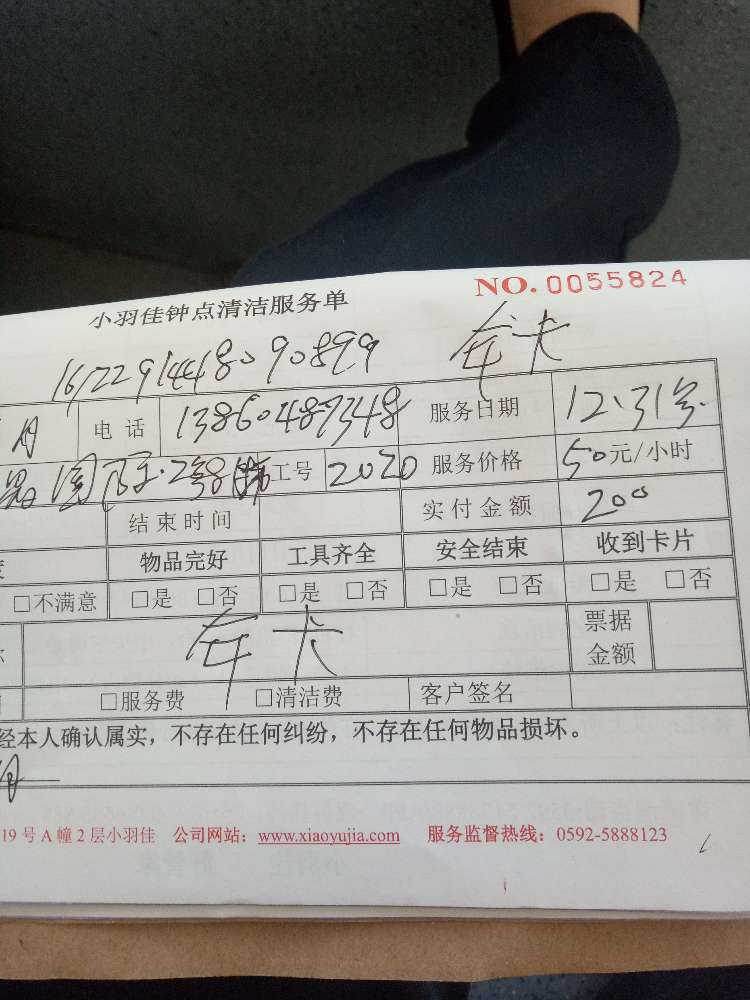 NO. 0055824
小羽佳钟点清洁服务单
1612291448090899 年卡
月 电话 13860487348 服务日期 12.31号
2号 工号 2020 服务价格 50元/小时
结束时间 实付金额 200
物品完好 工具齐全 安全结束 收到卡片
□不满意 □是 □否 □是 □否 □是 □否 □是 □否
年卡 票据金额
□服务费 □清洁费 客户签名
经本人确认属实，不存在任何纠纷，不存在任何物品损坏。
19号A幢2层小羽佳 公司网站：www.xiaoyujia.com 服务监督热线：0592-5888123